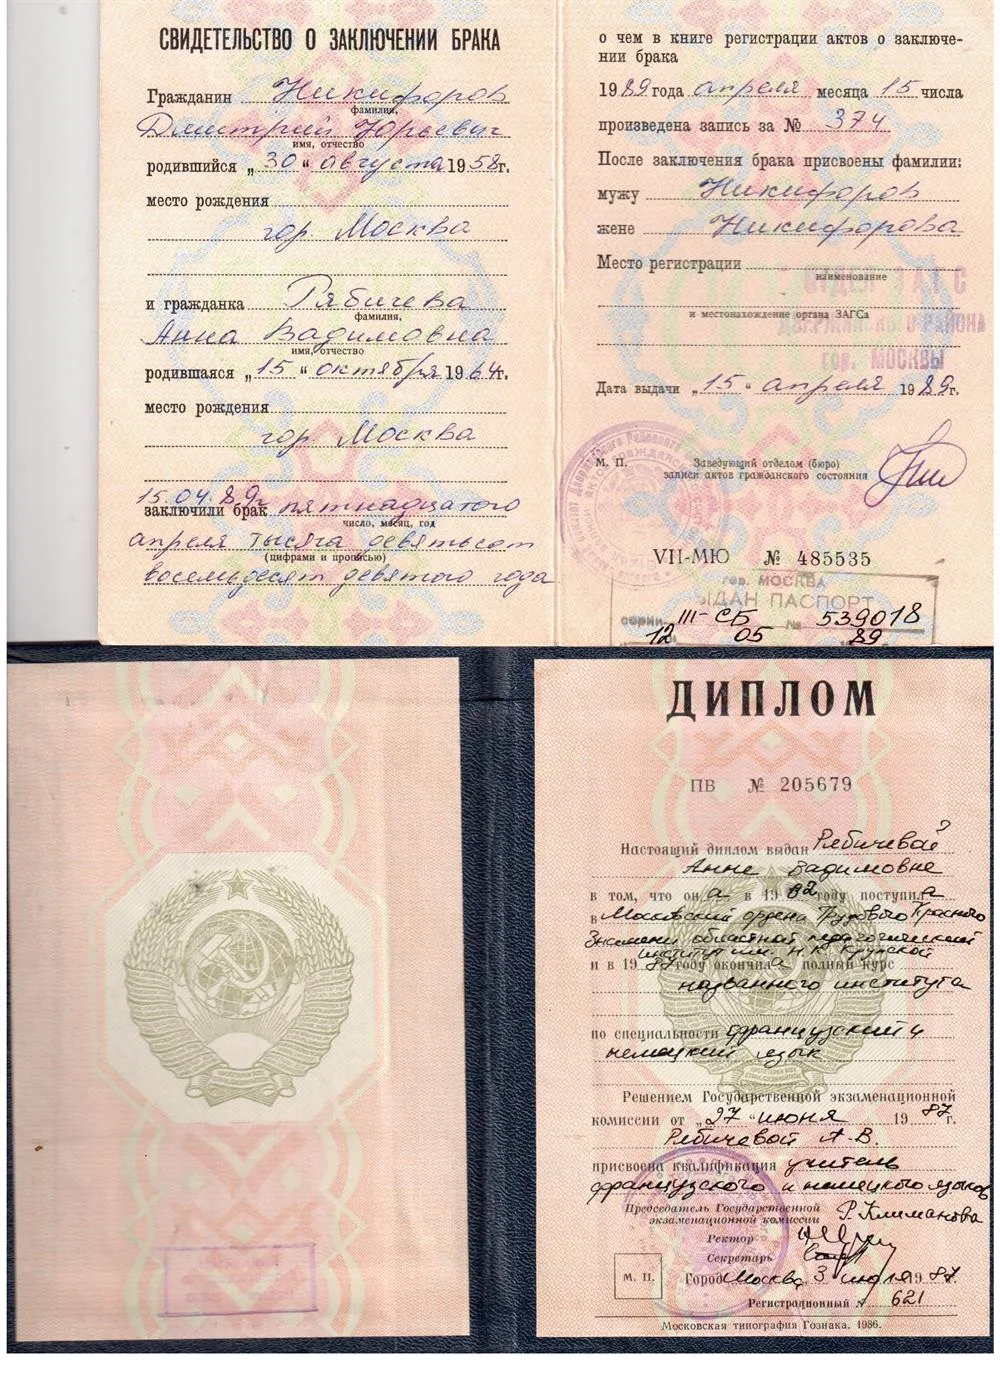 СВИДЕТЕЛЬСТВО О ЗАКЛЮЧЕНИИ БРАКА
Гражданин Никифоров
фамилия,
Дмитрий Юрьевич
имя, отчество
родившийся „30“ августа 1958г.
место рождения
гор. Москва
и гражданка Рябичева
фамилия,
Анна Вадимовна
имя, отчество
родившаяся „15“ октября 1964г.
место рождения
гор. Москва
15.04.89г
заключили брак пятнадцатого
число, месяц, год
апреля тысяча девятьсот
(цифрами и прописью)
восемьдесят девятого года
о чем в книге регистрации актов о заключе-
нии брака
1989 года апреля месяца 15 числа
произведена запись за № 374
После заключения брака присвоены фамилии:
мужу Никифоров
жене Никифорова
Место регистрации
наименование
ОТДЕЛ ЗАГС
и местонахождение органа ЗАГСа
ДЗЕРЖИНСКОГО РАЙОНА
гор. МОСКВЫ
Дата выдачи „15“ апреля 1989г.
М. П.
Заведующий отделом (бюро)
записи актов гражданского состояния
VII-МЮ № 485535
гор. МОСКВА
ВЫДАН ПАСПОРТ
серии III-СБ № 539018
12 05 89
ДИПЛОМ
ПВ № 205679
Настоящий диплом выдан Рябичевой
Анне Вадимовне
в том, что она в 1982 году поступила
в Московский ордена Трудового Красного
Знамени областной педагогический
институт им. Н.К. Крупской
и в 1987 году окончила полный курс
названного института
по специальности французский и
немецкий язык
Решением Государственной экзаменационной
комиссии от „27“ июня 1987г.
Рябичевой А.В.
присвоена квалификация учитель
французского и немецкого языков
Председатель Государственной
экзаменационной комиссии Р. Климанова
Ректор
Секретарь
М. П.
Город Москва, 3 июля 1987.
Регистрационный № 621
Московская типография Гознака, 1986.